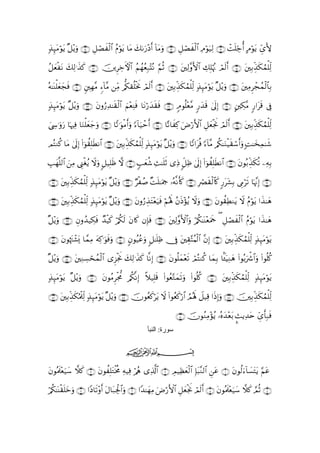 لِأَيِّ يَوْمٍ أُجِّلَتْ ۝ لِيَوْمِ ٱلْفَصْلِ ۝ وَمَآ أَدْرَىٰكَ مَا يَوْمُ ٱلْفَصْلِ ۝ وَيْلٌ يَوْمَئِذٍ
لِّلْمُكَذِّبِينَ ۝ أَلَمْ نُهْلِكِ ٱلْأَوَّلِينَ ۝ ثُمَّ نُتْبِعُهُمُ ٱلْـَٔاخِرِينَ ۝ كَذَٰلِكَ نَفْعَلُ
بِٱلْمُجْرِمِينَ ۝ وَيْلٌ يَوْمَئِذٍ لِّلْمُكَذِّبِينَ ۝ أَلَمْ نَخْلُقكُّم مِّن مَّآءٍ مَّهِينٍ ۝ فَجَعَلْنَٰهُ
فِى قَرَارٍ مَّكِينٍ ۝ إِلَىٰ قَدَرٍ مَّعْلُومٍ ۝ فَقَدَرْنَا فَنِعْمَ ٱلْقَٰدِرُونَ ۝ وَيْلٌ يَوْمَئِذٍ
لِّلْمُكَذِّبِينَ ۝ أَلَمْ نَجْعَلِ ٱلْأَرْضَ كِفَاتًا ۝ أَحْيَآءً وَأَمْوَٰتًا ۝ وَجَعَلْنَا فِيهَا رَوَٰسِىَ
شَٰمِخَٰتٍ وَأَسْقَيْنَٰكُم مَّآءً فُرَاتًا ۝ وَيْلٌ يَوْمَئِذٍ لِّلْمُكَذِّبِينَ ۝ ٱنطَلِقُوٓا۟ إِلَىٰ مَا كُنتُم
بِهِۦ تُكَذِّبُونَ ۝ ٱنطَلِقُوٓا۟ إِلَىٰ ظِلٍّ ذِى ثَلَٰثِ شُعَبٍ ۝ لَّا ظَلِيلٍ وَلَا يُغْنِى مِنَ ٱللَّهَبِ
۝ إِنَّهَا تَرْمِى بِشَرَرٍ كَٱلْقَصْرِ ۝ كَأَنَّهُۥ جِمَٰلَتٌ صُفْرٌ ۝ وَيْلٌ يَوْمَئِذٍ لِّلْمُكَذِّبِينَ ۝
هَٰذَا يَوْمُ لَا يَنطِقُونَ ۝ وَلَا يُؤْذَنُ لَهُمْ فَيَعْتَذِرُونَ ۝ وَيْلٌ يَوْمَئِذٍ لِّلْمُكَذِّبِينَ ۝
هَٰذَا يَوْمُ ٱلْفَصْلِ ۖ جَمَعْنَٰكُمْ وَٱلْأَوَّلِينَ ۝ فَإِن كَانَ لَكُمْ كَيْدٌ فَكِيدُونِ ۝ وَيْلٌ
يَوْمَئِذٍ لِّلْمُكَذِّبِينَ ۝ إِنَّ ٱلْمُتَّقِينَ فِى ظِلَٰلٍ وَعُيُونٍ ۝ وَفَوَٰكِهَ مِمَّا يَشْتَهُونَ ۝
كُلُوا۟ وَٱشْرَبُوا۟ هَنِيٓـًٔۢا بِمَا كُنتُمْ تَعْمَلُونَ ۝ إِنَّا كَذَٰلِكَ نَجْزِى ٱلْمُحْسِنِينَ ۝ وَيْلٌ
يَوْمَئِذٍ لِّلْمُكَذِّبِينَ ۝ كُلُوا۟ وَتَمَتَّعُوا۟ قَلِيلًا إِنَّكُم مُّجْرِمُونَ ۝ وَيْلٌ يَوْمَئِذٍ
لِّلْمُكَذِّبِينَ ۝ وَإِذَا قِيلَ لَهُمُ ٱرْكَعُوا۟ لَا يَرْكَعُونَ ۝ وَيْلٌ يَوْمَئِذٍ لِّلْمُكَذِّبِينَ ۝
فَبِأَىِّ حَدِيثٍۭ بَعْدَهُۥ يُؤْمِنُونَ ۝
سورة: النبأ
بسم الله الرحمن الرحيم
عَمَّ يَتَسَآءَلُونَ ۝ عَنِ ٱلنَّبَإِ ٱلْعَظِيمِ ۝ ٱلَّذِى هُمْ فِيهِ مُخْتَلِفُونَ ۝ كَلَّا سَيَعْلَمُونَ
۝ ثُمَّ كَلَّا سَيَعْلَمُونَ ۝ أَلَمْ نَجْعَلِ ٱلْأَرْضَ مِهَٰدًا ۝ وَٱلْجِبَالَ أَوْتَادًا ۝ وَخَلَقْنَٰكُمْ